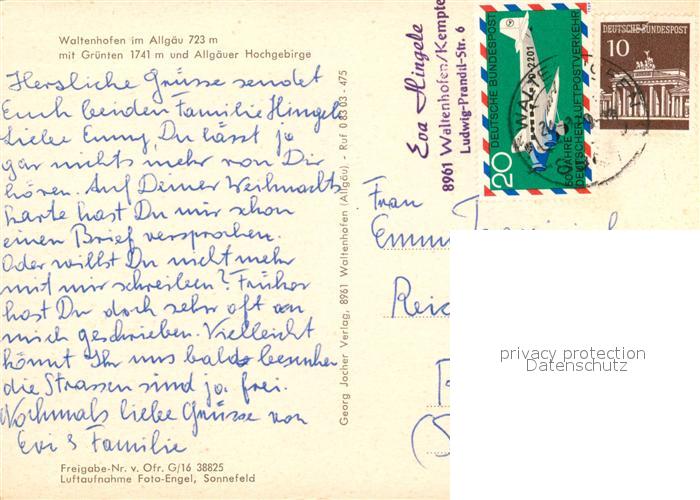 Waltenhofen im Allgäu 723 m
mit Grünten 1741 m und Allgäuer Hochgebirge
Herzliche Grüsse sendet
Euch beiden Familie Hingele
Liebe Emmy, Du lässt ja
gar nichts mehr von Dir
hören. Auf Deiner Weihnachts
karte hast Du mir schon
einen Brief versprochen.
Oder willst Du nicht mehr
mit mir schreiben? Früher
hast Du doch sehr oft an
mich geschrieben. Vielleicht
könnt Ihr uns bald besuchen
die Strassen sind ja frei.
Nochmals liebe Grüsse von
Evi & Familie
Freigabe-Nr. v. Ofr. G/16 38825
Luftaufnahme Foto-Engel, Sonnefeld
Georg Jocher Verlag, 8961 Waltenhofen (Allgäu) - Ruf 0 83 03 - 475
Eva Hingele
8961 Waltenhofen/Kempten
Ludwig-Prandtl-Str. 6
20
DEUTSCHE BUNDESPOST
50 JAHRE
DEUTSCHER LUFTPOSTVERKEHR
DEUTSCHE BUNDESPOST
10
Frau
privacy protection
Datenschutz